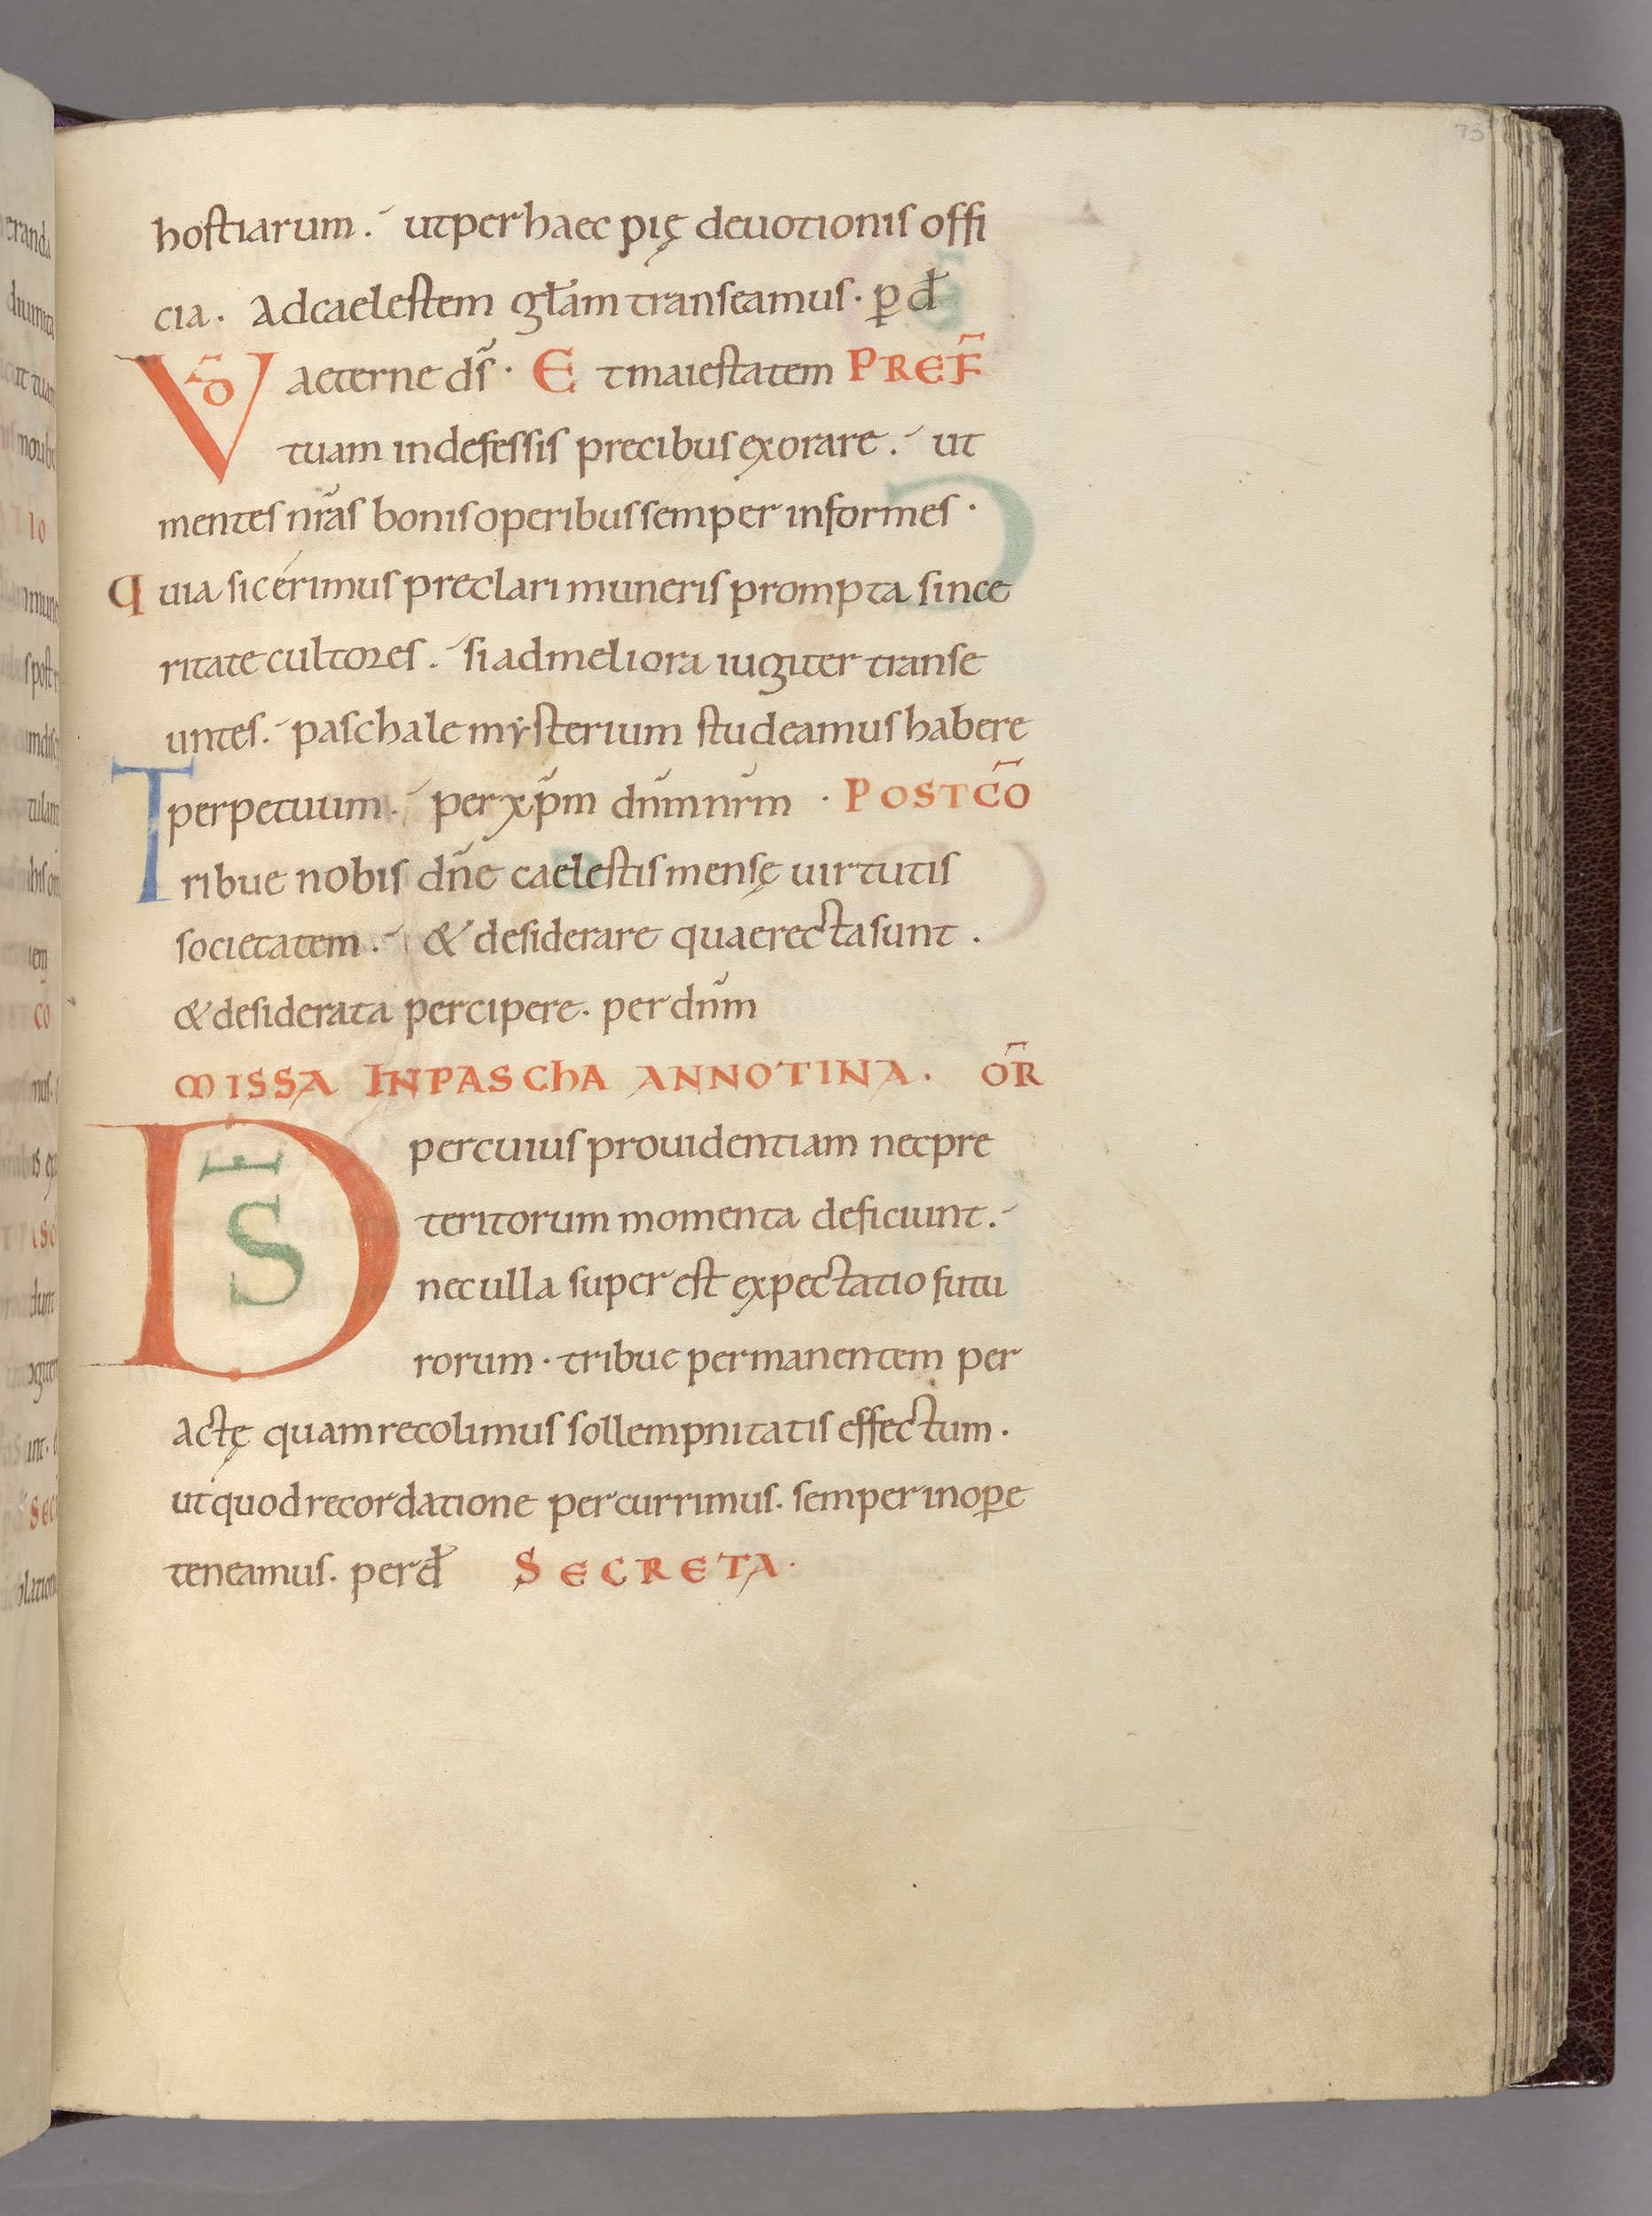 73
hostiarum. ut per haec pię deuotionis offi
cia. Ad caelestem gl̄am transeamus. p̱ d̄
VD̄ aeterne ds̄. Et maiestatem PREF̄
tuam indefessis precibus exorare. ut
mentes nr̄as bonis operibus semper informes.
quia sic erimus preclari muneris prompta since
ritate cultores. si ad meliora iugiter transe
untes. paschale mysterium studeamus habere
perpetuum. per xp̄m dn̄m nr̄m. POSTCŌ
Tribue nobis dn̄e caelestis mensę uirtutis
societatem. & desiderare quae recta sunt.
& desiderata percipere. per dn̄m
MISSA IN PASCHA ANNOTINA. OR̄
DS̄ per cuius prouidentiam nec pre
teritorum momenta deficiunt.
nec ulla superest expectatio futu
rorum. tribue permanentem per
actę quam recolimus sollempnitatis effectum.
ut quod recordatione percurrimus. semper in op̱e
teneamus. per d̄ SECRETA.